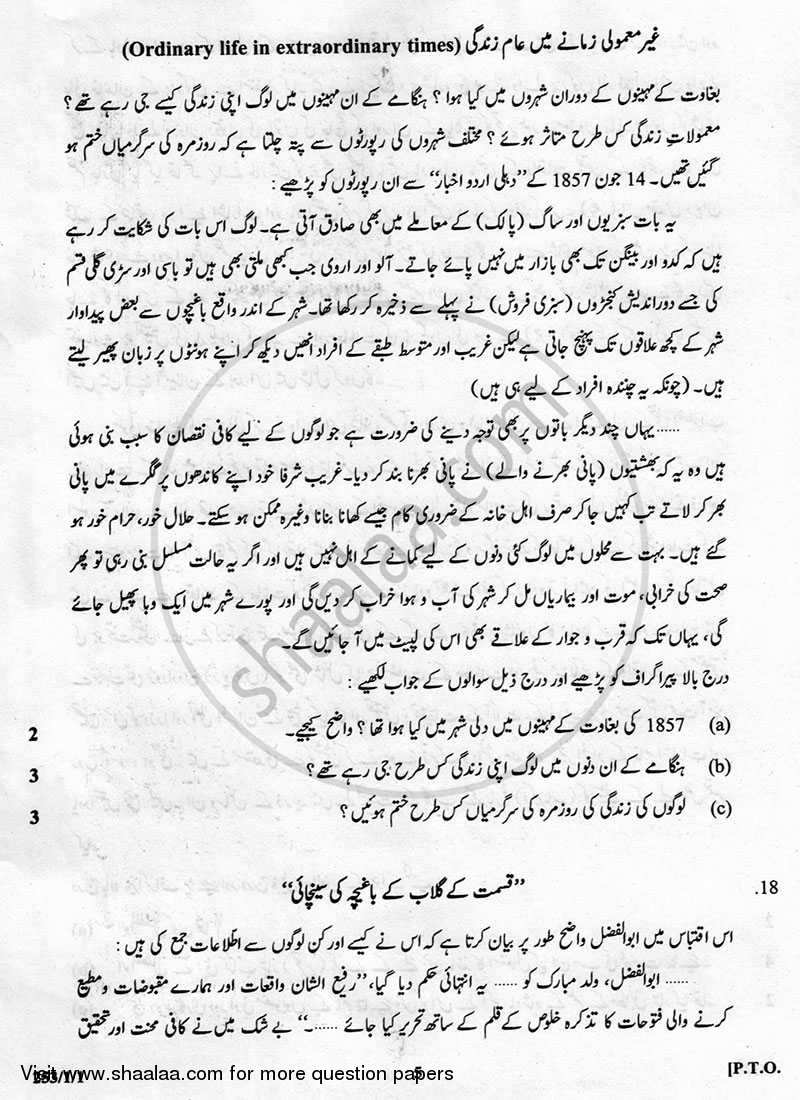 غیر معمولی زمانے میں عام زندگی (Ordinary life in extraordinary times)
بغاوت کے مہینوں کے دوران شہروں میں کیا ہوا ؟ ہنگامے کے ان مہینوں میں لوگ اپنی زندگی کیسے جی رہے تھے ؟
معمولاتِ زندگی کس طرح متاثر ہوئے ؟ مختلف شہروں کی رپورٹوں سے پتہ چلتا ہے کہ روزمرہ کی سرگرمیاں ختم ہو
گئیں تھیں۔ 14 جون 1857 کے ”دہلی اردو اخبار“ سے ان رپورٹوں کو پڑھیے :
یہ بات سبزیوں اور ساگ (پالک) کے معاملے میں بھی صادق آتی ہے۔ لوگ اس بات کی شکایت کر رہے
ہیں کہ کدو اور بینگن تک بھی بازار میں نہیں پائے جاتے۔ آلو اور اروی جب کبھی ملتی بھی ہیں تو باسی اور سڑی گلی قسم
کی جسے دوراندیش کنجڑوں (سبزی فروش) نے پہلے سے ذخیرہ کر رکھا تھا۔ شہر کے اندر واقع باغیچوں سے بعض پیداوار
شہر کے کچھ علاقوں تک پہنچ جاتی ہے لیکن غریب اور متوسط طبقے کے افراد انھیں دیکھ کر اپنے ہونٹوں پر زبان پھیر لیتے
ہیں۔ (چونکہ یہ چنندہ افراد کے لیے ہی ہیں)
...... یہاں چند دیگر باتوں پر بھی توجہ دینے کی ضرورت ہے جو لوگوں کے لیے کافی نقصان کا سبب بنی ہوئی
ہیں وہ یہ کہ بھشتیوں (پانی بھرنے والے) نے پانی بھرنا بند کر دیا۔ غریب شرفا خود اپنے کاندھوں پر گگرے میں پانی
بھر کر لاتے تب کہیں جا کر صرف اہل خانہ کے ضروری کام جیسے کھانا بنانا وغیرہ ممکن ہو سکتے۔ حلال خور، حرام خور ہو
گئے ہیں۔ بہت سے محلوں میں لوگ کئی دنوں کے لیے کمانے کے اہل نہیں ہیں اور اگر یہ حالت مسلسل بنی رہی تو پھر
صحت کی خرابی، موت اور بیماریاں مل کر شہر کی آب و ہوا خراب کر دیں گی اور پورے شہر میں ایک وبا پھیل جائے
گی، یہاں تک کہ قرب و جوار کے علاقے بھی اس کی لپیٹ میں آ جائیں گے۔
درج بالا پیراگراف کو پڑھیے اور درج ذیل سوالوں کے جواب لکھیے :
(a) 1857 کی بغاوت کے مہینوں میں دلی شہر میں کیا ہوا تھا ؟ واضح کیجیے۔ 2
(b) ہنگامے کے ان دنوں میں لوگ اپنی زندگی کس طرح جی رہے تھے ؟ 3
(c) لوگوں کی زندگی کی روزمرہ کی سرگرمیاں کس طرح ختم ہوئیں ؟ 3
18. ”قسمت کے گلاب کے باغیچہ کی سینچائی“
اس اقتباس میں ابوالفضل واضح طور پر بیان کرتا ہے کہ اس نے کیسے اور کن لوگوں سے اطلاعات جمع کی ہیں :
...... ابوالفضل، ولد مبارک کو ...... یہ انتہائی حکم دیا گیا، ”رفیع الشان واقعات اور ہمارے مقبوضات و مطیع
کرنے والی فتوحات کا تذکرہ خلوص کے قلم کے ساتھ تحریر کیا جائے ......۔“ بے شک میں نے کافی محنت اور تحقیق
253/1/1 5 [P.T.O.
Visit www.shaalaa.com for more question papers
shaalaa.com